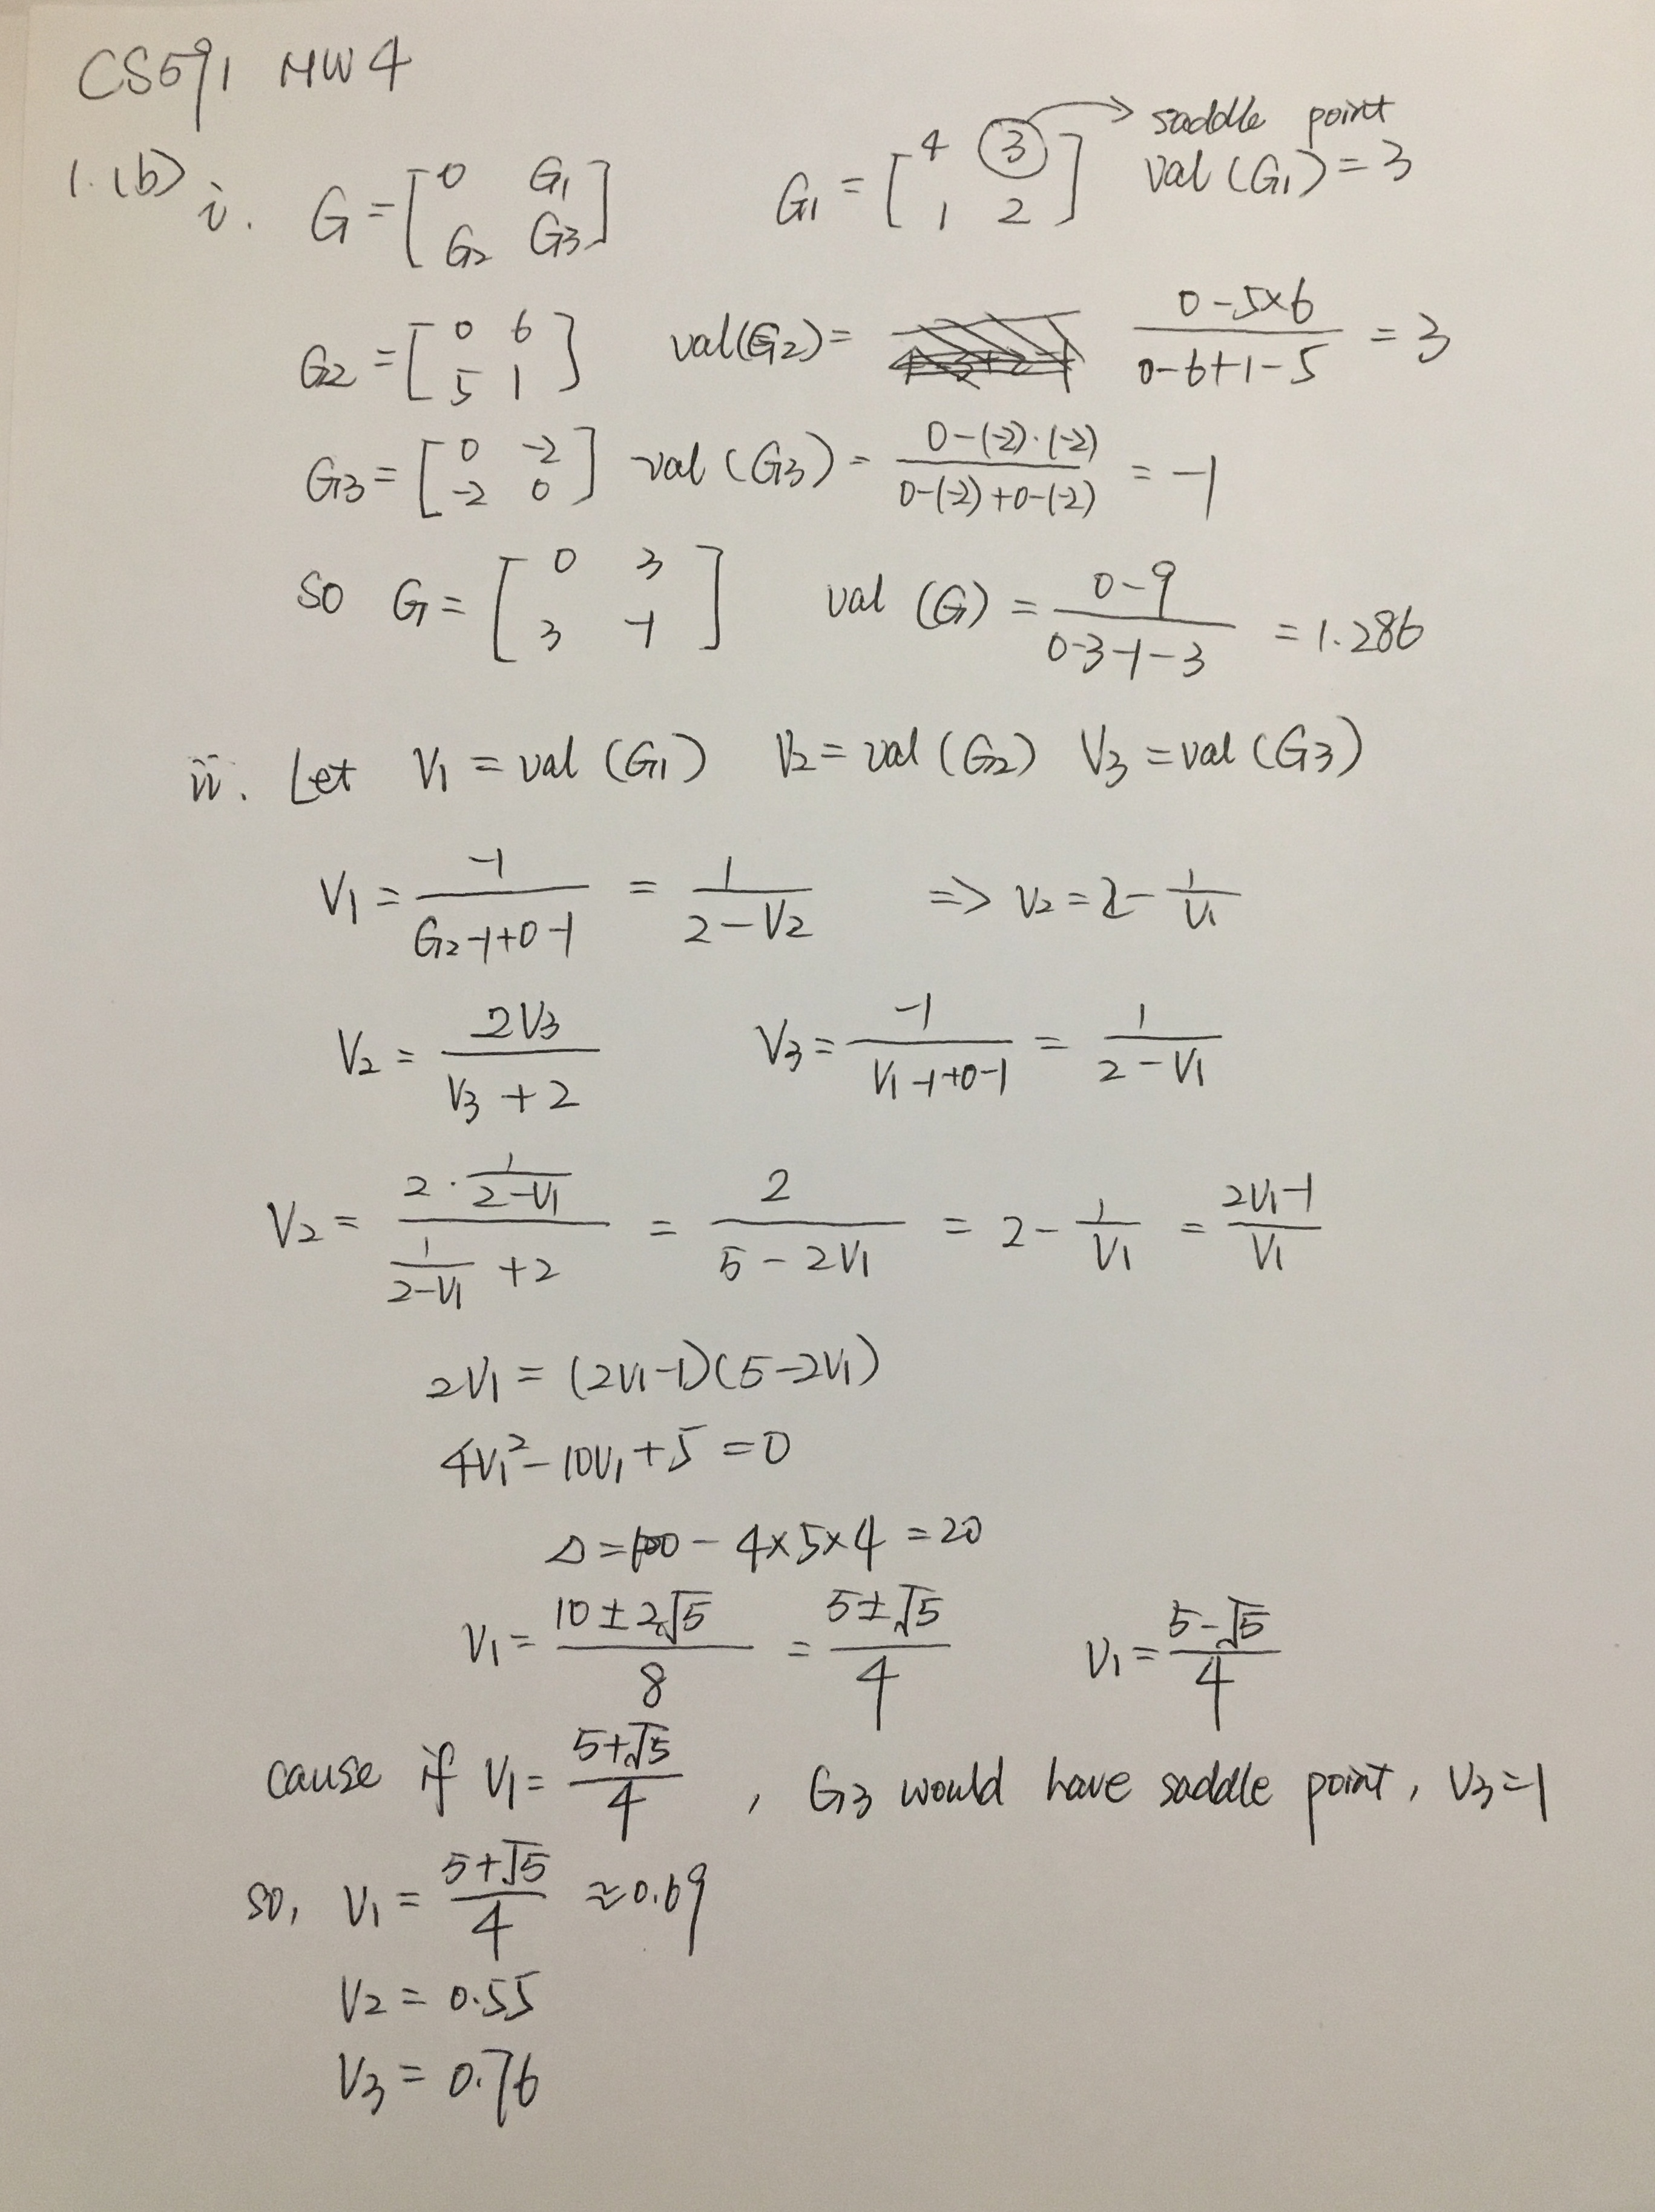 CS591 HW4
1.(b) i. G = [0 G1; G2 G3] G1 = [4 3; 1 2] → saddle point val(G1) = 3
G2 = [0 6; 5 1] val(G2) = (0-5×6)/(0-6+1-5) = 3
G3 = [0 -2; -2 0] val(G3) = (0-(-2)·(-2))/(0-(-2)+0-(-2)) = -1
so G = [0 3; 3 -1] val(G) = (0-9)/(0-3-1-3) = 1.286
ii. Let V1 = val(G1) V2 = val(G2) V3 = val(G3)
V1 = -1/(G2-1+0-1) = 1/(2-V2) => V2 = 2 - 1/V1
V2 = 2V3/(V3+2) V3 = -1/(V1-1+0-1) = 1/(2-V1)
V2 = (2·1/(2-V1))/(1/(2-V1)+2) = 2/(5-2V1) = 2 - 1/V1 = (2V1-1)/V1
2V1 = (2V1-1)(5-2V1)
4V1² - 10V1 + 5 = 0
Δ = 100 - 4×5×4 = 20
V1 = (10±2√5)/8 = (5±√5)/4 V1 = (5-√5)/4
cause if V1 = (5+√5)/4, G3 would have saddle point, V3=1
so, V1 = (5+√5)/4 ≈ 0.69
V2 = 0.55
V3 = 0.76